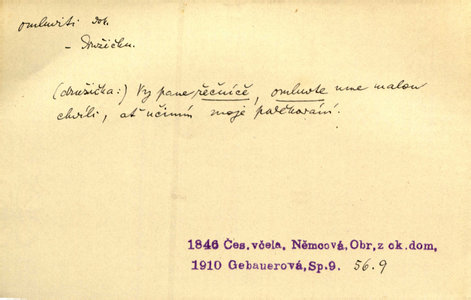 omluviti dok.
– Družičku.
(družička:) Vy pane, řečníče, omluvte mne malou
chvíli, ať učiním moje poděkování.
1846 Čes.včela, Němcová,Obr,z ok.dom,
1910 Gebauerová,Sp.9. 56.9